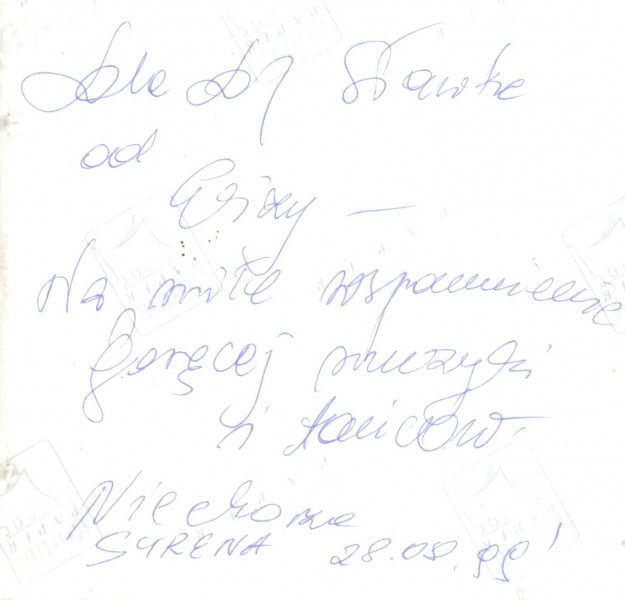 Dla DJ Sławka
od
Elizy —
Na miłe wspomnienie
gorącej muzyki
i tańców.
Niechorze
SYRENA 28.08.99'